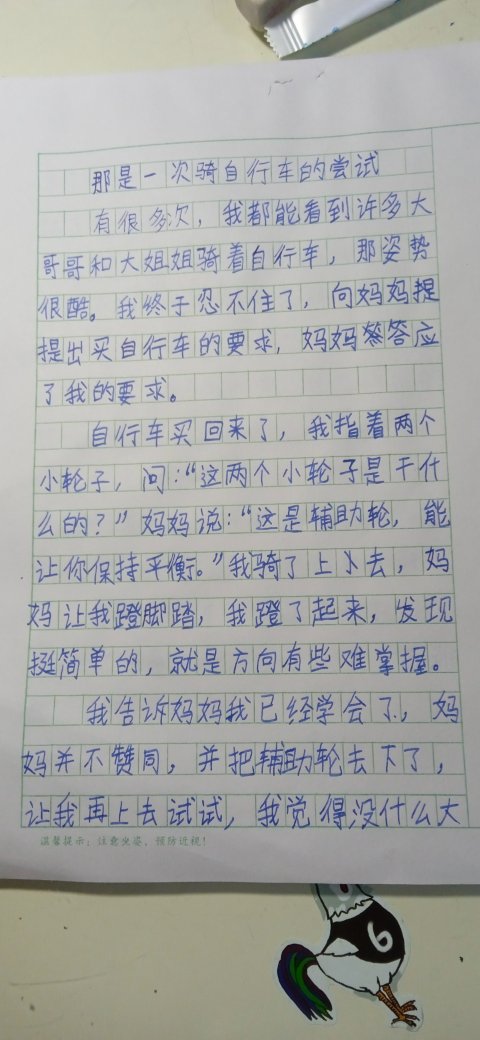 那是一次骑自行车的尝试
有很多次，我都能看到许多大
哥哥和大姐姐骑着自行车，那姿势
很酷。我终于忍不住了，向妈妈提
提出买自行车的要求，妈妈答应
了我的要求。
自行车买回来了，我指着两个
小轮子，问：“这两个小轮子是干什
么的？”妈妈说：“这是辅助轮，能
让你保持平衡。”我骑了上去，妈
妈让我蹬脚踏，我蹬了起来，发现
挺简单的，就是方向有些难掌握。
我告诉妈妈我已经学会了，妈
妈并不赞同，并把辅助轮去下了，
让我再上去试试，我觉得没什么大
温馨提示：注意坐姿，预防近视！
6